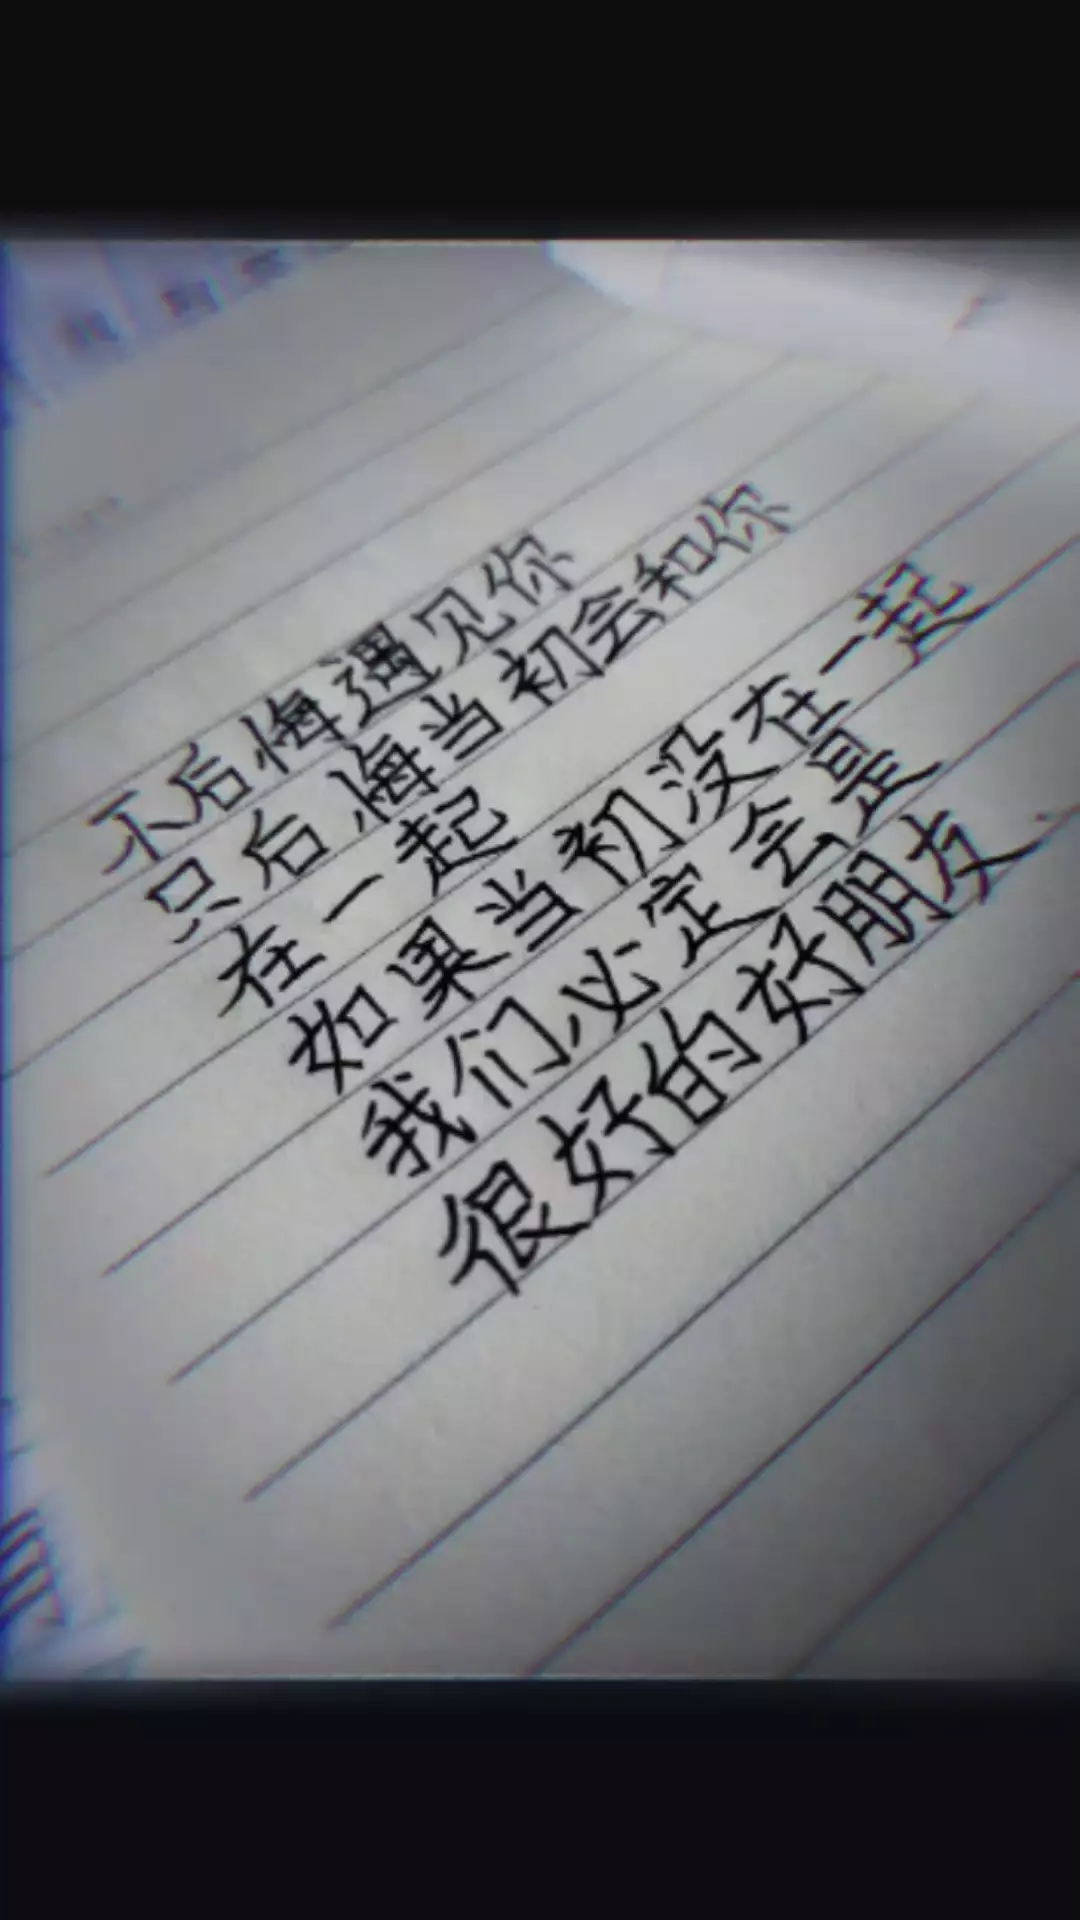 不后悔遇见你
只后悔当初会和你
在一起
如果当初没在一起
我们必定会是
很好的好朋友.